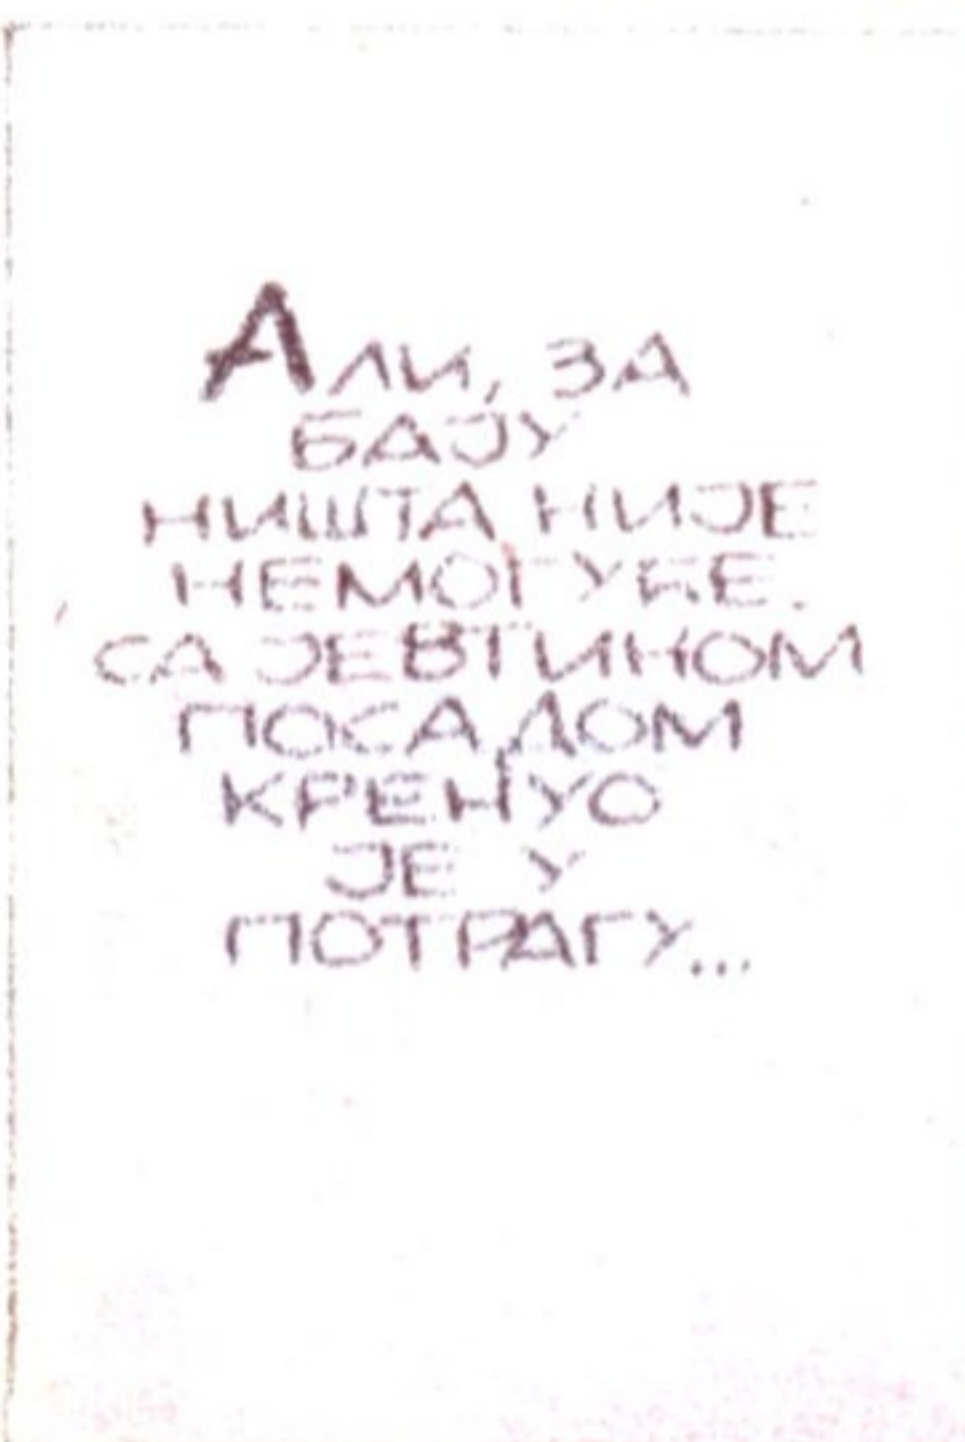 Али, ЗА
БАЈУ
НИШТА НИЈЕ
НЕМОГУЋЕ.
СА ЈЕВТИНОМ
ПОСАДОМ
КРЕНУО
ЈЕ У
ПОТРАГУ...